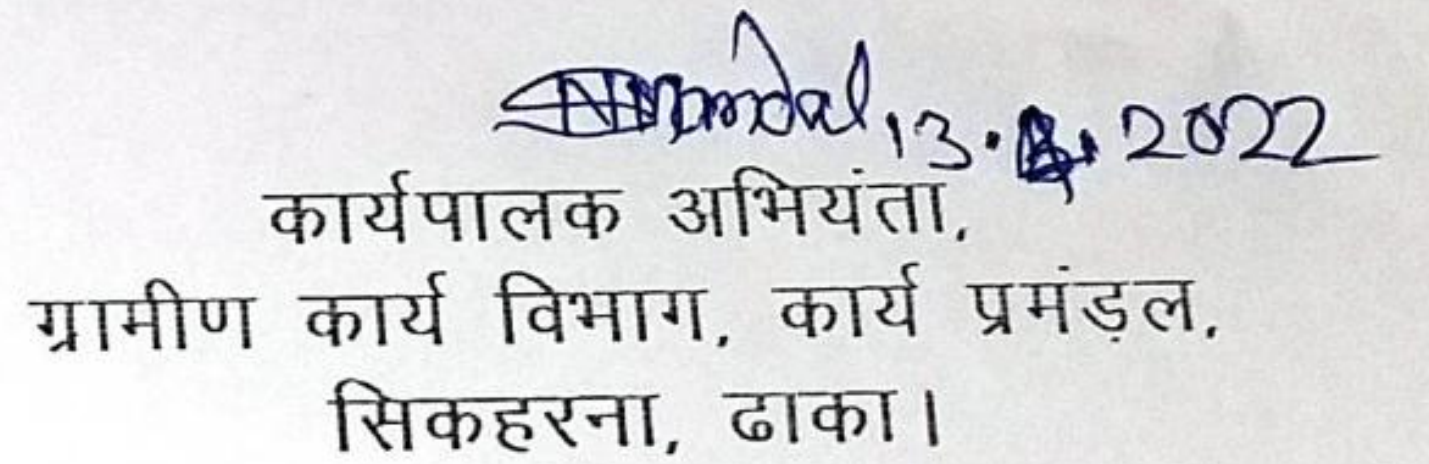 13. 2022
कार्यपालक अभियंता,
ग्रामीण कार्य विभाग, कार्य प्रमंड़ल,
सिकहरना, ढाका।